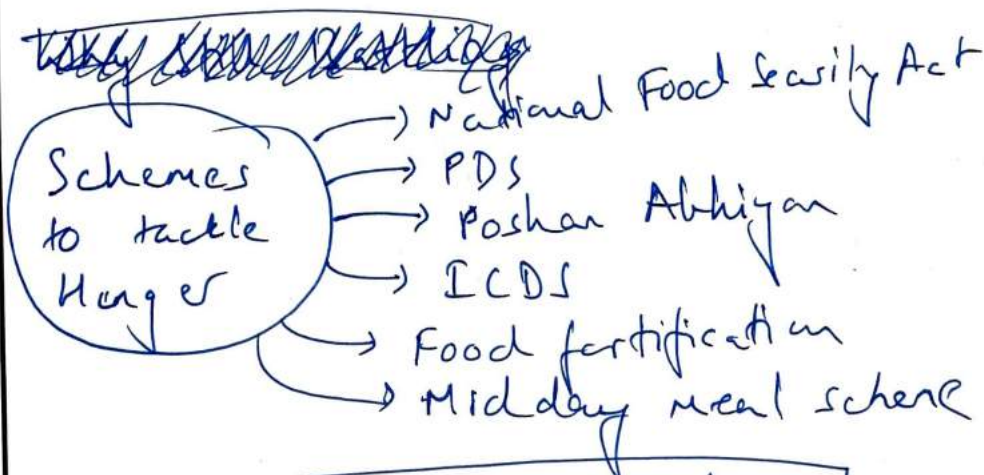 Schemes
to tackle
Hunger
National Food Security Act
PDS
Poshan Abhiyan
ICDS
Food fortification
Midday meal scheme